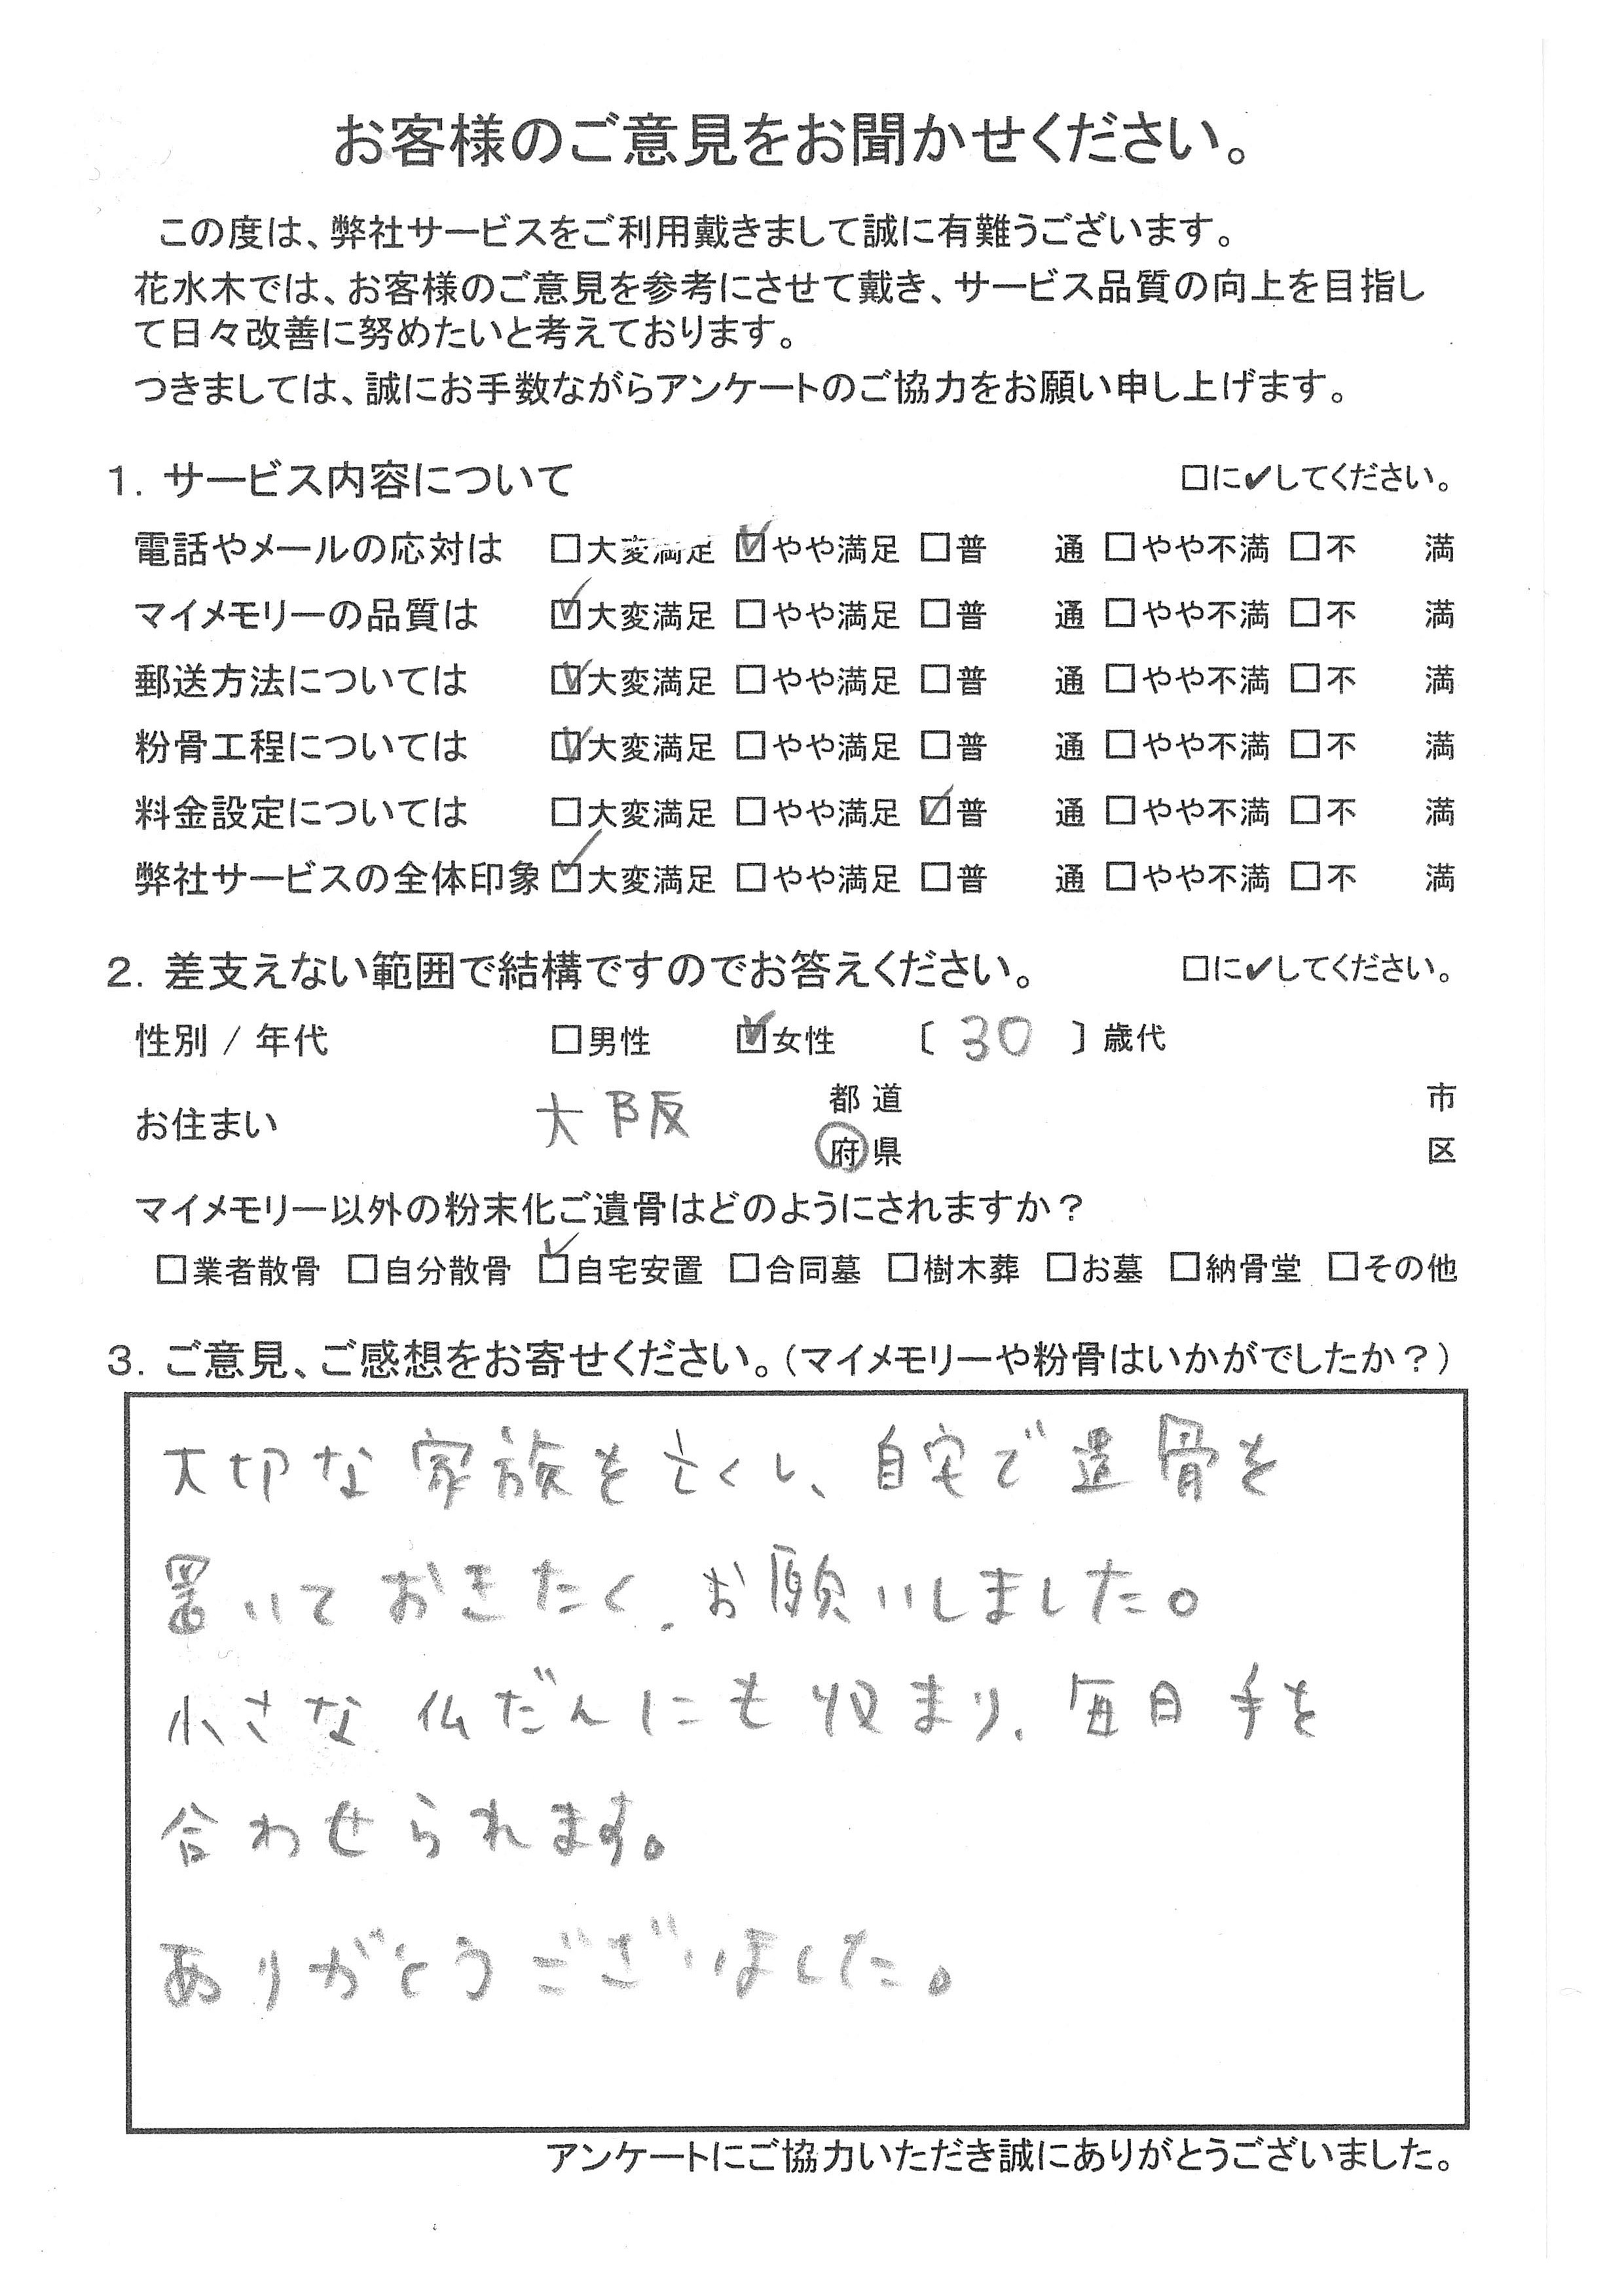 お客様のご意見をお聞かせください。
この度は、弊社サービスをご利用戴きまして誠に有難うございます。
花水木では、お客様のご意見を参考にさせて戴き、サービス品質の向上を目指し
て日々改善に努めたいと考えております。
つきましては、誠にお手数ながらアンケートのご協力をお願い申し上げます。
1. サービス内容について □に✔してください。
電話やメールの応対は □大変満足 ☑やや満足 □普 通 □やや不満 □不 満
マイメモリーの品質は ☑大変満足 □やや満足 □普 通 □やや不満 □不 満
郵送方法については ☑大変満足 □やや満足 □普 通 □やや不満 □不 満
粉骨工程については ☑大変満足 □やや満足 □普 通 □やや不満 □不 満
料金設定については □大変満足 □やや満足 ☑普 通 □やや不満 □不 満
弊社サービスの全体印象 ☑大変満足 □やや満足 □普 通 □やや不満 □不 満
2. 差支えない範囲で結構ですのでお答えください。 □に✔してください。
性別 / 年代 □男性 ☑女性 〔 30 〕歳代
都道 市
お住まい 大阪
府県 区
マイメモリー以外の粉末化ご遺骨はどのようにされますか？
□業者散骨 □自分散骨 ☑自宅安置 □合同墓 □樹木葬 □お墓 □納骨堂 □その他
3. ご意見、ご感想をお寄せください。（マイメモリーや粉骨はいかがでしたか？）
大切な家族を亡くし、自宅で遺骨を
置いておきたく、お願いしました。
小さな仏だんにも収まり、毎日手を
合わせられます。
ありがとうございました。
アンケートにご協力いただき誠にありがとうございました。